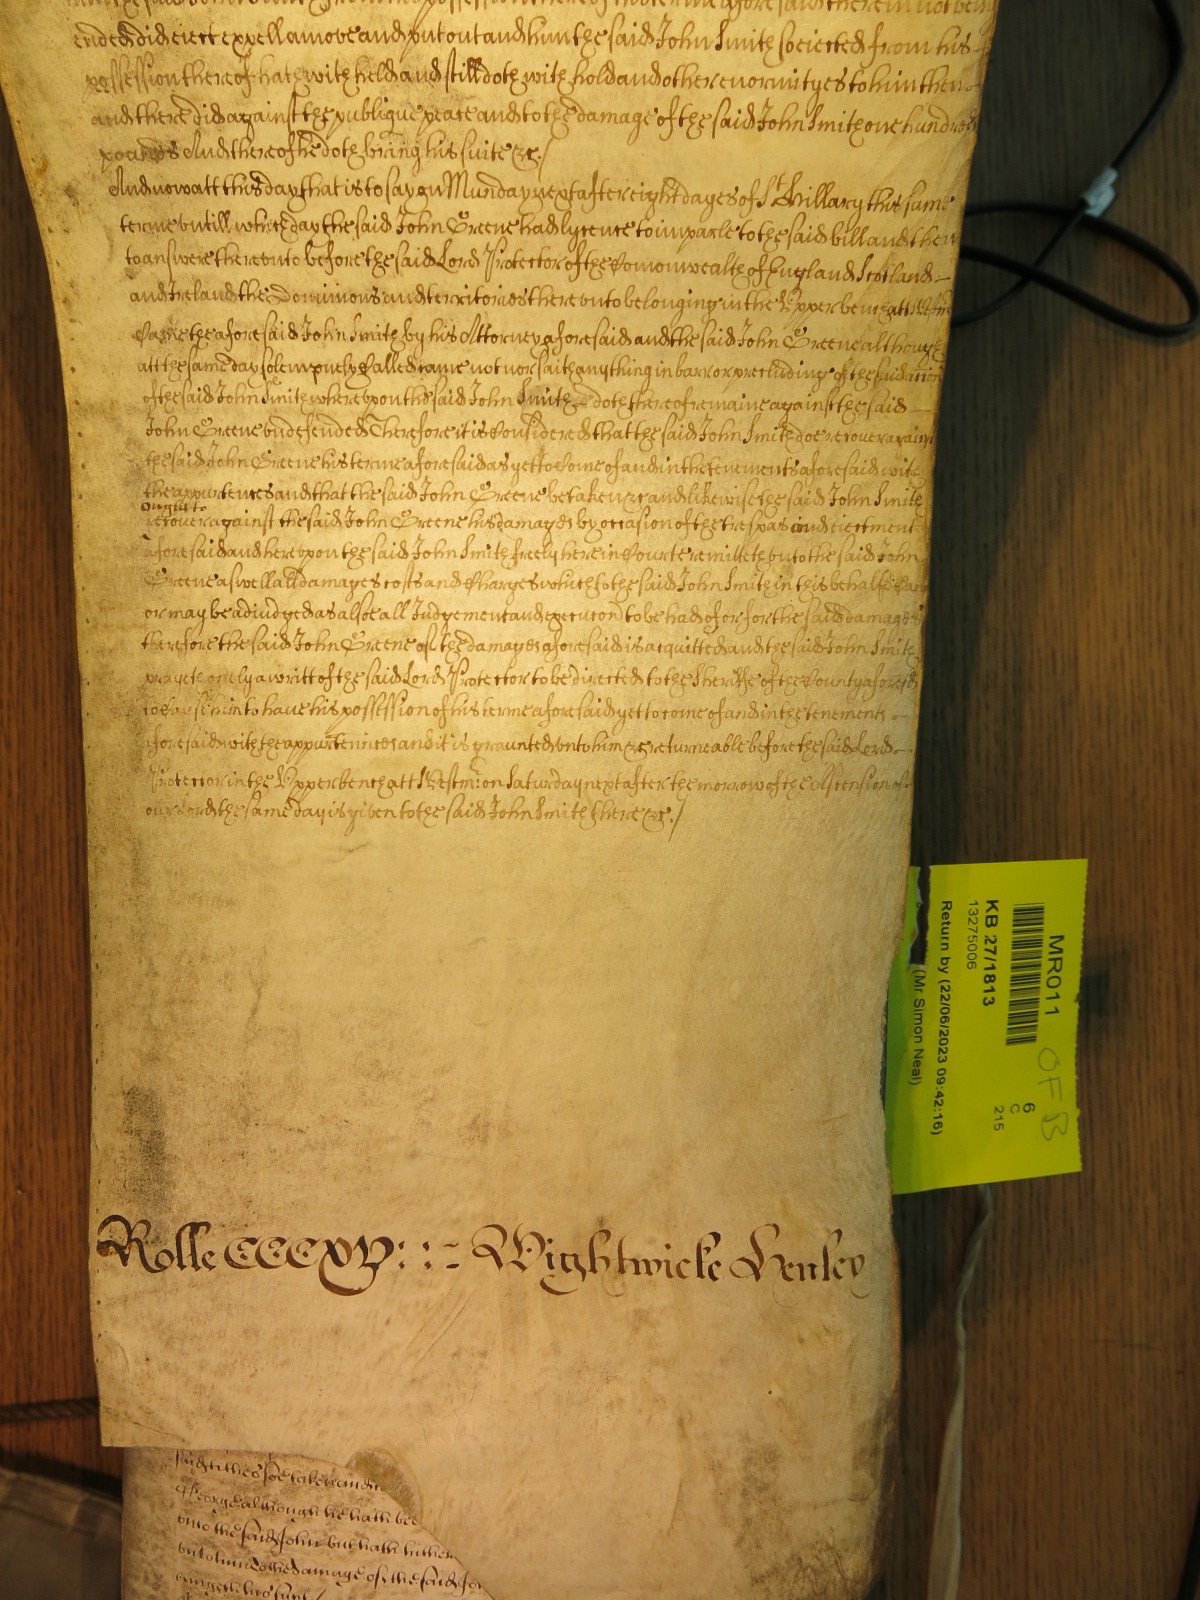 ended did eiect expell amove and put out and him the said John Smith soe iected from his
possession thereof hath with held and still doth with hold and other enormityes to him then
and there did against the publique peace and to the damage of the said John Smith one hundred
pounds And thereof he doth bring his suite &c./
And now att this day that is to say on Munday next after eight dayes of St Hillary this same
terme untill which day the said John Greene had lycence to imparle to the said bill and then
to answere thereunto before the said Lord Protector of the Comonwealth of England Scotland
and Ireland the Dominions and territories thereunto belonging in the Upper bench att Westm
Came the aforesaid John Smith by his Attorney aforesaid and the said John Greene although
att the same day solempnely Called came not nor saith any thing in barr or precluding of the
of the said John Smith whereupon the said John Smith doth thereof remaine against the said
John Greene undefended Therefore it is Considered that the said John Smith doe recover against
the said John Greene his terme aforesaid as yet to Come of and in the tenements aforesaid with
the appurtences and that the said John Greene be taken &c and likewise the said John Smith
ought to
recover against the said John Greene his damages by occasion of the trespas and eiectment
aforesaid and hereupon the said John Smith freely here in Court remitteth unto the said John
Greene aswell all damages costs and Charges which to the said John Smith in this behalfe
or may be adiudged as alsoe all Judgement and execucon to be had of or for the said damages
therefore the said John Greene of the damages aforesaid is acquitted and the said John Smith
prayeth onely a writt of the said Lord Protector to be directed to the Sheriffe of the County aforesaid
to Cause him to have his possession of his terme aforesaid yet to come of and in the tenements
aforesaid with the appurtenices and it is graunted unto him &c returneable before the said Lord
Protector in the Upper bench att Westm: on Saturday next after the morrow of the Ascension of
our Lord the same day is given to the said John Smith there &c./
Rolle CCCXV : : = Wightwicke Henley
George although he hath bee
unto the said John but hath hither
unto him to the damage of the said Jo
MR011
KB 27/1813
13275006
Return by (22/06/2023 09:42:16)
(Mr Simon Neal)
OFB
6
C
215